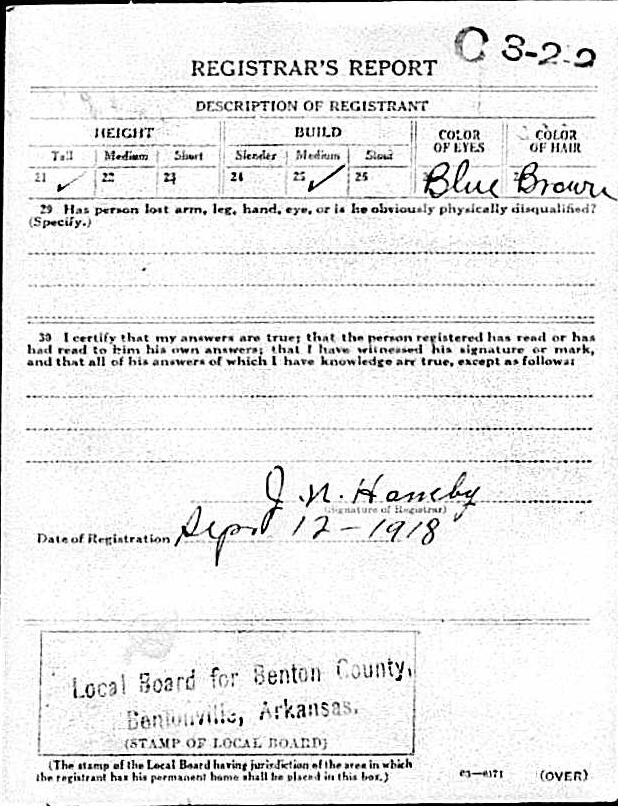 C 3-2-2
REGISTRAR'S REPORT
DESCRIPTION OF REGISTRANT
HEIGHT BUILD COLOR OF EYES COLOR OF HAIR
Tall Medium Short Slender Medium Stout
21 ✓ 22 23 24 25 ✓ 26 Blue Brown
29 Has person lost arm, leg, hand, eye, or is he obviously physically disqualified?
(Specify.)
30 I certify that my answers are true; that the person registered has read or has
had read to him his own answers; that I have witnessed his signature or mark,
and that all of his answers of which I have knowledge are true, except as follows:
J. N.
(Signature of Registrar)
Date of Registration Sept 12-1918
Local Board for Benton County,
Bentonville, Arkansas.
(STAMP OF LOCAL BOARD)
(The stamp of the Local Board having jurisdiction of the area in which
the registrant has his permanent home shall be placed in this box.)
03—6171 (OVER)